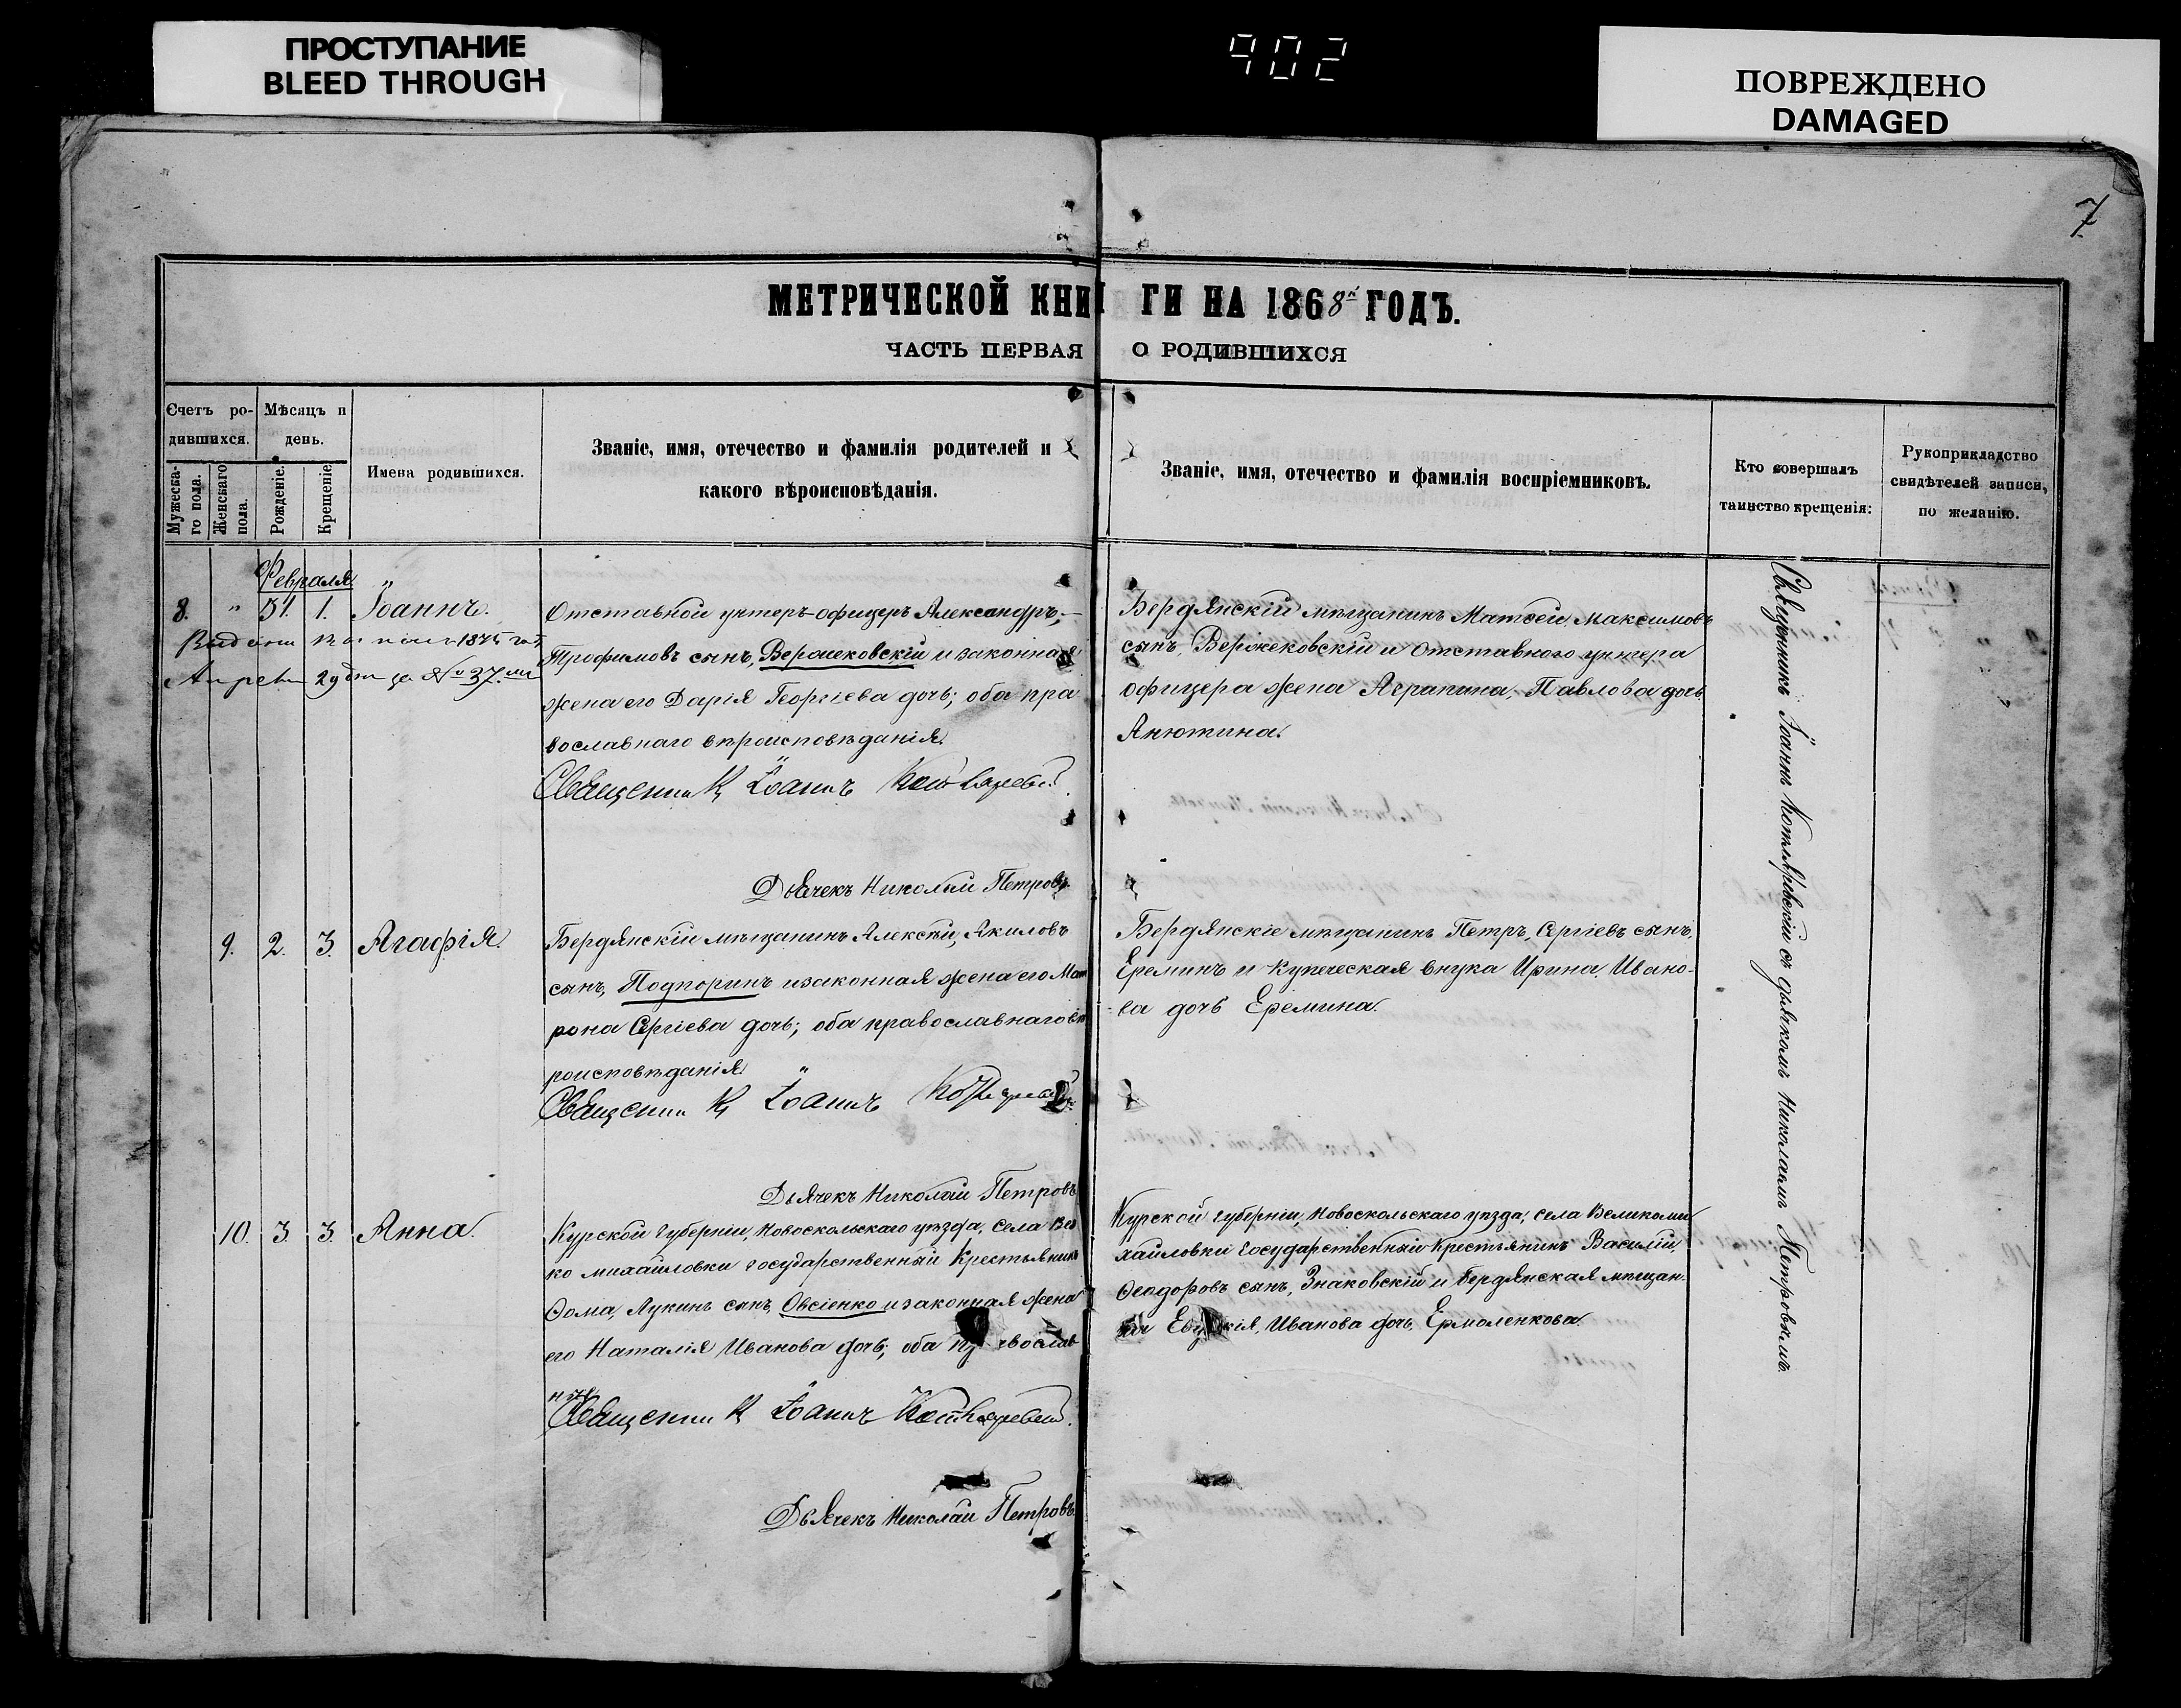 ПРОСТУПАНИЕ
BLEED THROUGH
902
ПОВРЕЖДЕНО
DAMAGED
7.
МЕТРИЧЕСКОЙ КНИГИ НА 1868й ГОДЪ.
ЧАСТЬ ПЕРВАЯ О РОДИВШИХСЯ
Счетъ ро-
дившихся.
Мужеска-
го пола.
Женскаго
пола.
Мѣсяцъ и
день.
Рожденіе.
Крещеніе.
Имена родившихся.
Званіе, имя, отечество и фамилія родителей и
какого вѣроисповѣданія.
Званіе, имя, отечество и фамилія воспріемниковъ.
Кто совершалъ
таинство крещенія:
Рукоприкладство
свидѣтелей записи,
по желанію.
Февраля
8. " 31. 1. Іоаннъ.
1875 год.
29 дня за № 37.
Отставной унтеръ-офицеръ Александръ,
Трофимовъ сынъ, Вержековскій и законная
жена его Дарія Георгіева дочь; оба пра
вославнаго вѣроисповѣданія.
Священникъ Іоаннъ Котляревскій.
Дьячекъ Николай Петровъ
Бердянскій мѣщанинъ Матѳей, Максимовъ
сынъ, Вержековскій и отставнаго унтера
офицера жена Агрипина, Павлова дочь
Анютина.
9. 2. 3. Агафія.
Бердянскій мѣщанинъ Алексѣй, Акиловъ
сынъ, Подпоринъ и законная жена его Мат
рона Сергіева дочь; оба православнаго вѣ
роисповѣданія
Священникъ Іоаннъ Котляревскій
Дьячекъ Николай Петровъ
Бердянскіе мѣщанинъ Петръ, Сергіевъ сынъ,
Ереминъ и купеческая внука Ирина, Ивано-
ва дочь Еремина.
10. 3. 3. Анна.
Курской губерніи, Новоскольскаго уѣзда, села Вели
ко михайловки государственный крестьянинъ
Ѳома, Лукинъ сынъ, Овсіенко и законная жена
его Наталія Иванова дочь; оба православ-
наго
Священникъ Іоаннъ Котляревскій.
Дьячекъ Николай Петровъ.
Курской губерніи, Новоскольскаго уѣзда, села Великоми
хайловки государственный крестьянинъ Василій,
Ѳеодоровъ сынъ, Знаковскій и бердянская мѣщан-
ка Евдокія, Иванова дочь, Ермоленкова.
Священникъ Іоаннъ Котляревскій съ дьячкомъ Николаемъ Петровымъ.